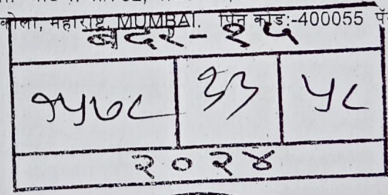 कोला, महाराष्ट्र, MUMBAI. पिन कोड:-400055 पॅ
बदर-१५
१५७८ ३३ ५८
२०२४